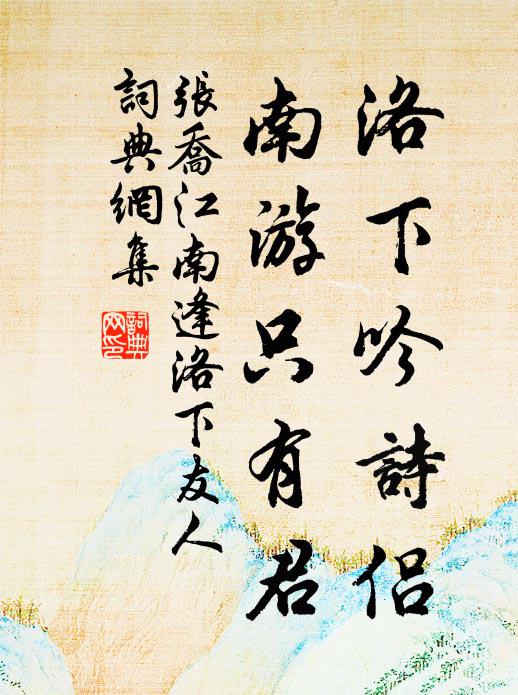 洛下吟詩侶
南游只有君
張喬江南逢洛下友人
詞典網集
詞典网印